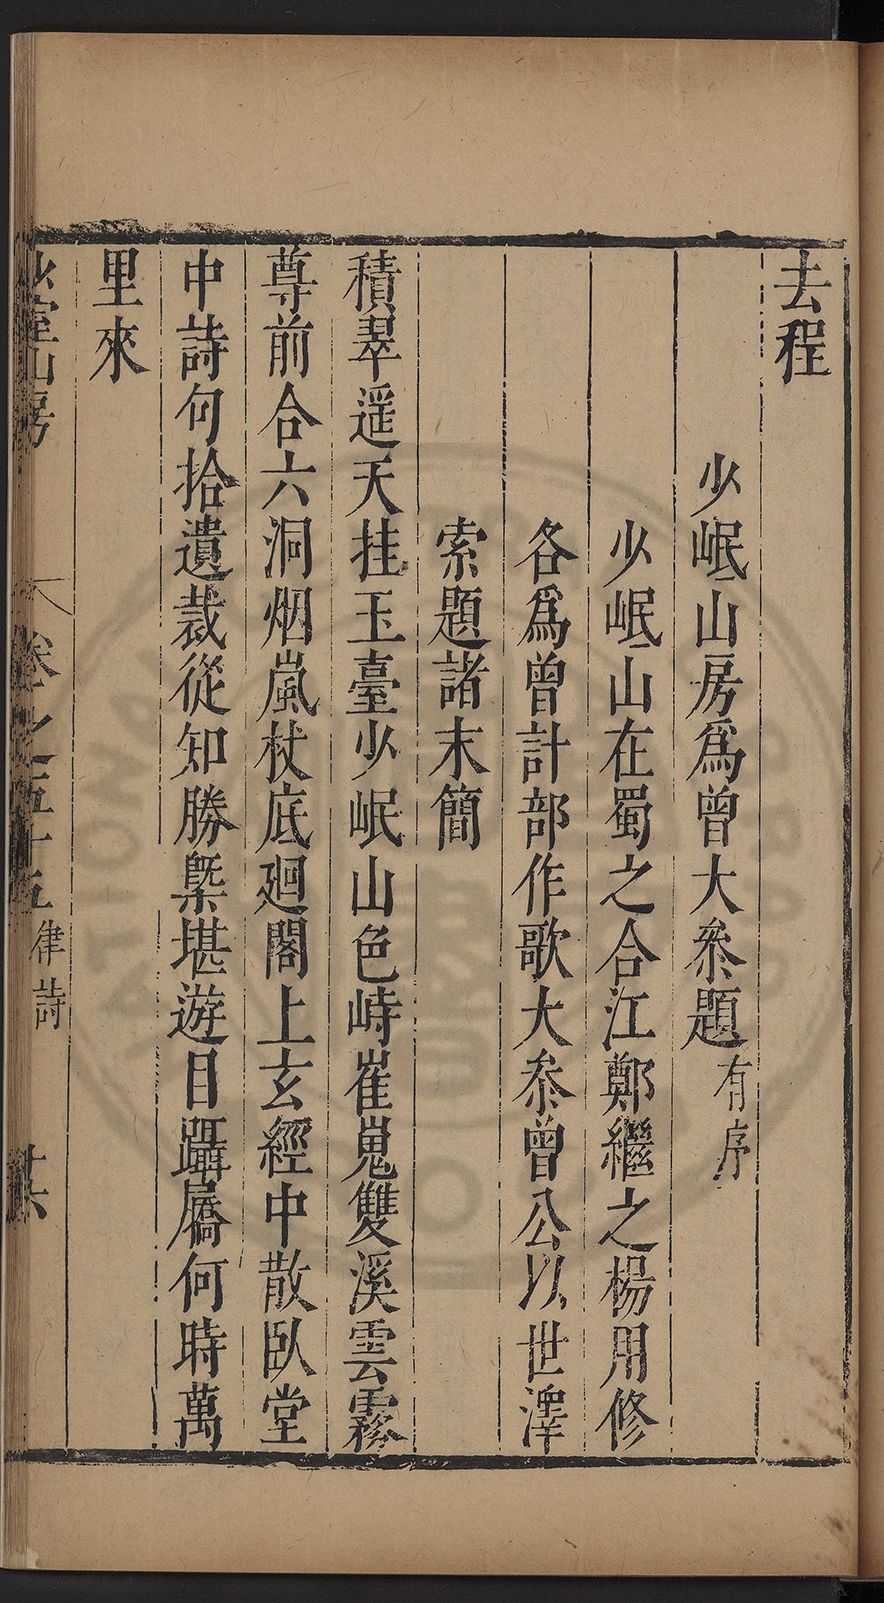 去程
少岷山房爲曾大參題有序
少岷山在蜀之合江鄭繼之楊用修
各爲曾計部作歌大參曾公以世澤
索題諸末簡
積翠遥天挂玉臺少岷山色峙崔嵬雙溪雲霧
尊前合六洞烟嵐杖底廻閣上玄經中散臥堂
中詩句拾遺裁從知勝槩堪遊目躡屩何時萬
里來
少室山房 卷之五十五律詩 共